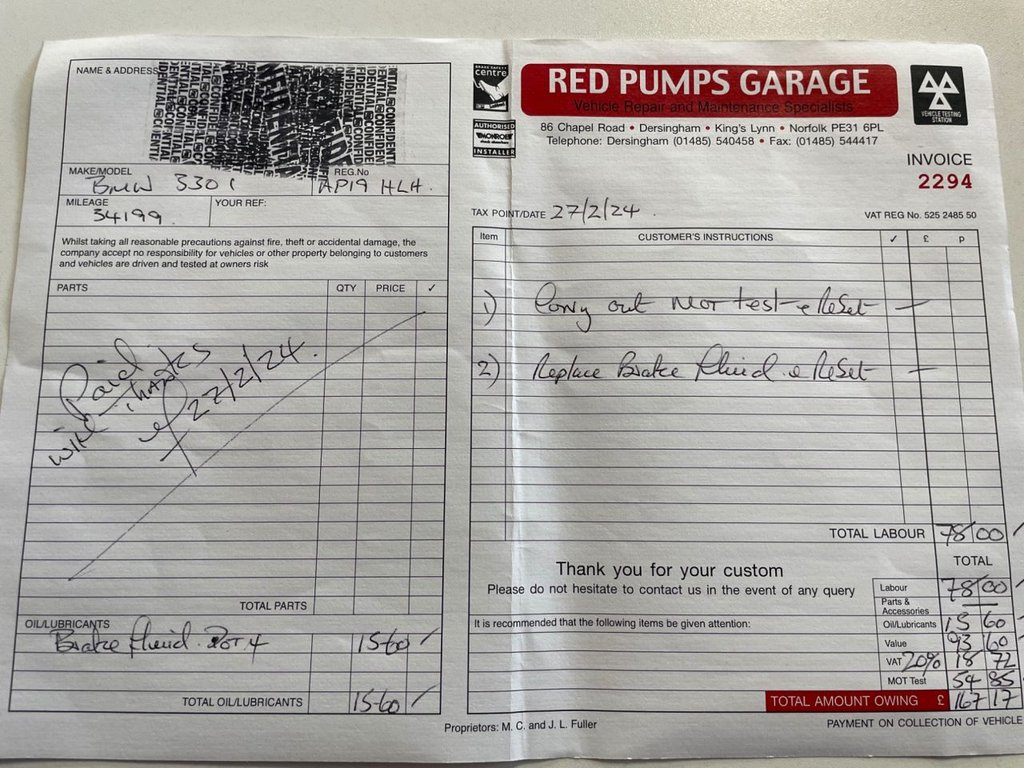 NAME & ADDRESS
MAKE/MODEL
BMW 330i
REG.No
AP19 HLH.
MILEAGE
34199
YOUR REF:
Whilst taking all reasonable precautions against fire, theft or accidental damage, the
company accept no responsibility for vehicles or other property belonging to customers
and vehicles are driven and tested at owners risk
PARTS QTY PRICE ✓
Paid
with thanks
27/2/24.
TOTAL PARTS
OIL/LUBRICANTS
Brake fluid DOT 4 15-60 ✓
TOTAL OIL/LUBRICANTS 15-60 ✓
centre
AUTHORISED
MONROE
INSTALLER
RED PUMPS GARAGE
Vehicle Repair and Maintenance Specialists
86 Chapel Road • Dersingham • King's Lynn • Norfolk PE31 6PL
Telephone: Dersingham (01485) 540458 • Fax: (01485) 544417
VEHICLE TESTING
STATION
INVOICE
2294
TAX POINT/DATE 27/2/24.
VAT REG No. 525 2485 50
Item CUSTOMER'S INSTRUCTIONS ✓ £ P
1) Carry out MOT test & Reset —
2) Replace Brake fluid & Reset —
TOTAL LABOUR 78/00 ✓
TOTAL
Thank you for your custom
Please do not hesitate to contact us in the event of any query
It is recommended that the following items be given attention:
Labour 78/00
Parts &
Accessories —
Oil/Lubricants 15 60
Value 93 60
VAT 20% 18 72
MOT Test 54 85
TOTAL AMOUNT OWING £ 167 17
Proprietors: M. C. and J. L. Fuller
PAYMENT ON COLLECTION OF VEHICLE